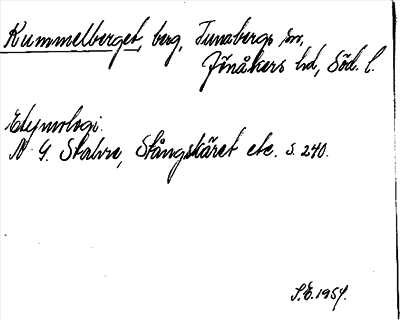 Kummelberget, berg, Tunabergs sn,
Jönåkers hd, Söd. l.
Etymologi.
N G. Stahre, Stångskäret etc. s. 240.
S.E. 1954.